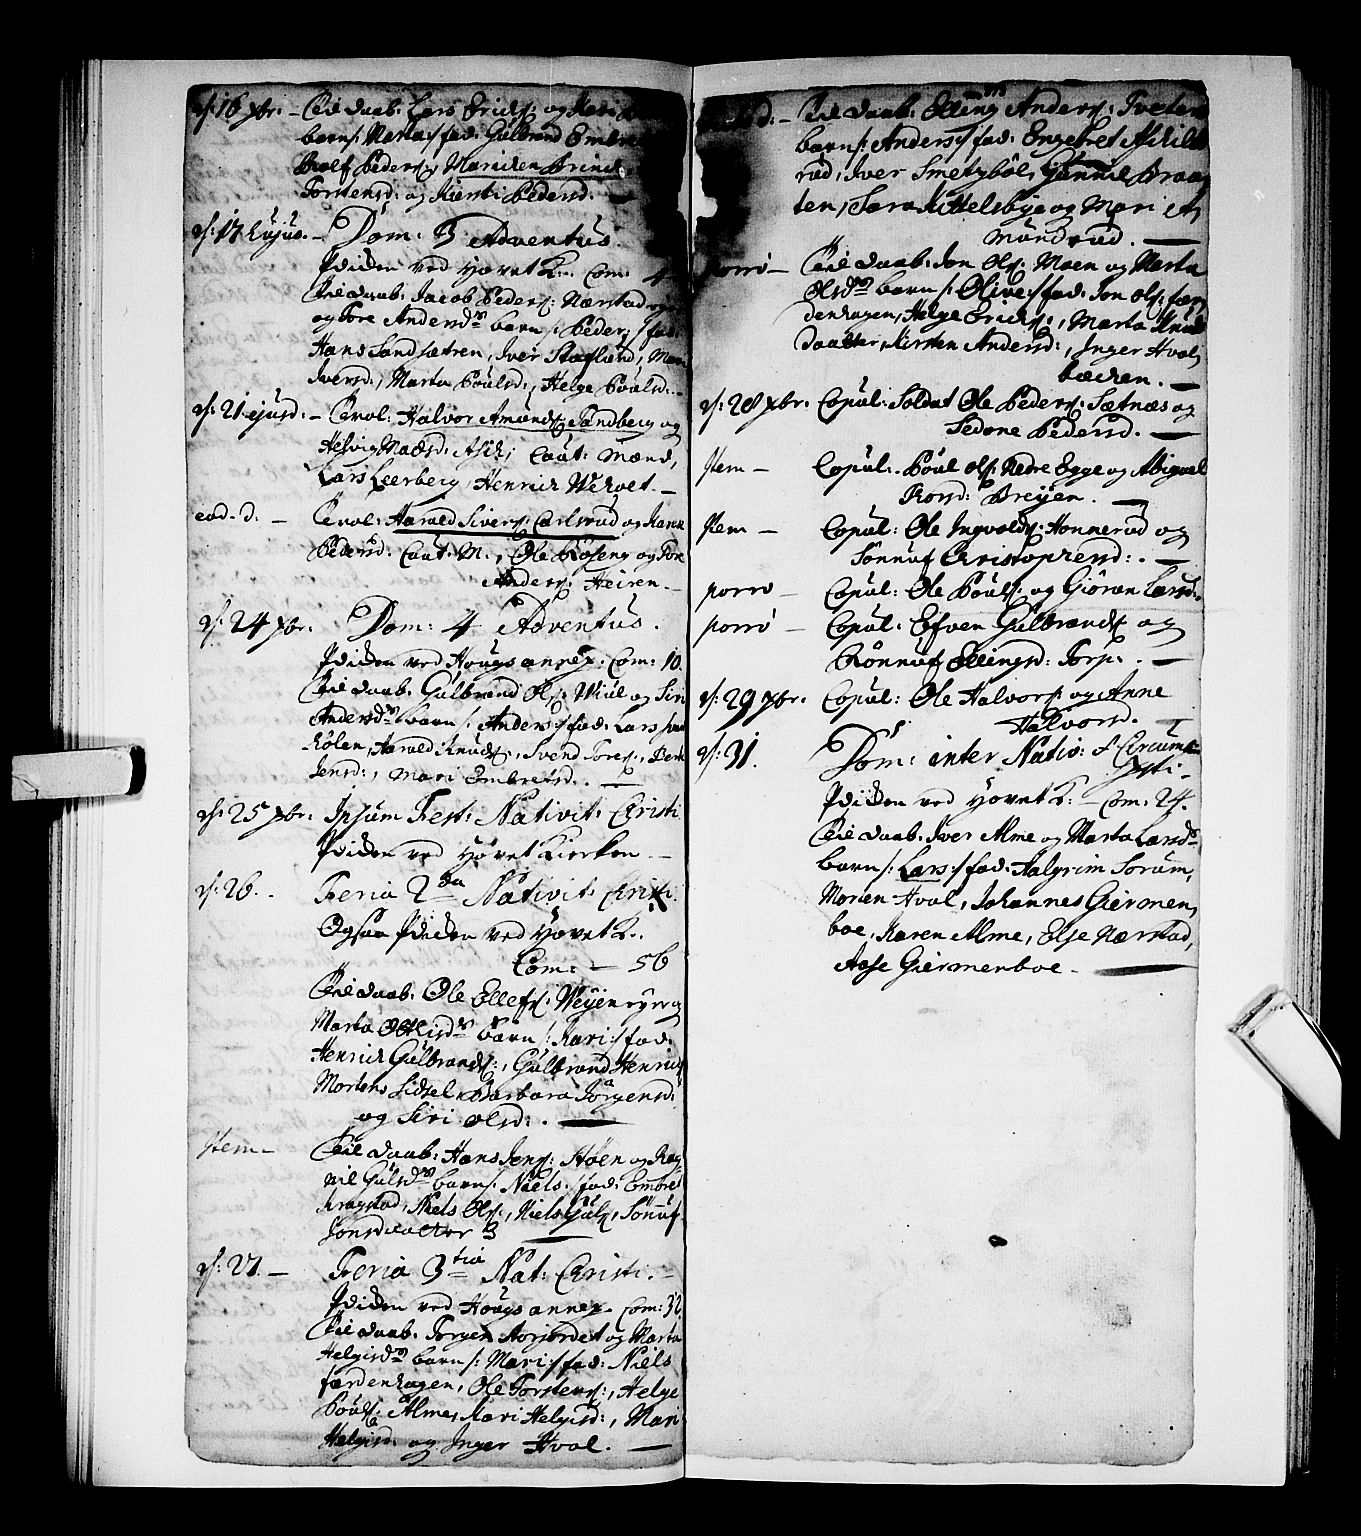 d: 16 xbr. – Til daab: Lars Erichs: og Kari
barn /: Marta :/ fad: Gulbrand Embret
Rolf Peders:, Marichen Brinch,
Torstensd: og Kiersti Pedersd. –
d: 17 hujus. – Dom: 3 Adventus.
Prædiken ved Hovet K: Com: 4
Til daab: Jacob Peders: Nærstad
og Tore Andersdr barn /: Peder :/ fad:
Hans Sandsætren, Iver Stafland, Mari
Iversd:, Marta Poulsd:, Helge Poulsd: –
d: 21 ejusd: – Trol: Halvor Amunds: Sandberg og
Helvig Madsd: Ask; Caut: Mænd,
Lars Leerberg, Henrich Wekset. –
eod. d. – Trol: Harald Sivers: Carlsrud og Karen
Pedersd: Caut: M:, Ole Roseng og Tore
Anders: Heiren –
d: 24 xbr. Dom: 4 Adventus.
Prædiken ved Hougs annex: Com: 10.
Til daab: Gulbrand Ols: Wiul og Siri
Andersdr barn /: Anders :/ fad: Lars
kolen, Harald Knuds:, Svend Tores:, Berte
Jensd:, Mari Embretsd: –
d: 25 xbr: Ipsum Fest: Nativit: Christi
Prædiken ved Hovet Kierken –
d: 26. – Feria 2da Nativit: Christi.
Ogsaa Prædiken ved Hovet K:.
Com: – 56
Til daab: Ole Ellefs: Weyen
Marta Olsdr barn /: Kari :/ fad:
Henrich Gulbrands:, Gulbrand Henrichs:
Morten, Sidsel, Barbara Jörgensd:
og Siri Olsd: –
Item – Til daab: Hans Jens: Höen og Rag
nil Gulsdr barn /: Niels :/ fad: Embret
Kragstad, Niels Ols:, Niels Guls:, Sönnuf
Jonsdaatter
d: 27. – Feria 3tia Nat: Christi. –
Prædiken ved Hougs annex. Com: 32
Til daab: Torgen Korsordet og Marta
Helgisdr barn /: Mari :/ fad: Niels
færdenhagen, Ole Torstens:, Helge
Pouls: Alme, Kari Helgisd:, Mari
Helgisd: og Inger Hval. –
eod: d: – Til daab: Elling Anders: Tveten
barn /: Anders :/ fad: Engebret Askild
rud, Iver Smetsböl, Gunnil Braa
ten, Sara Kittelsbye og Mari A
mundrud. –
porro – Til daab: Jon Ols: Moen og Marta
Olsdr barn /: Olive :/ fad: Jon Ols: fær
denhagen, Helge Erichs:, Marta Knuds
daatter, Kirsten Andersd:, Inger Hval,
bachen. –
d: 28 xbr: Copul: Soldat Ole Peders: Sætnæs og
Sedone Pedersd. –
Item – Copul: Poul Ols: Nedre Egge og Abigael
Roersd: Breyen. –
Item – Copul: Ole Ingvolds: Honnerud og
Sönnuf Christophersd: –
porro – Copul: Ole Pouls: og Giöran Larsd:
porro – Copul: Efven Gulbrands: og
Rönnuf Ellingsd: Torp: –
d: 29 xbr. Copul: Ole Halvors: og Anne
Halvorsd. –
d: 31. Dom: inter Nativ: & Circumcis:
Xsti –
Prædiken ved Hovet K: – Com: 24.
Til daab: Iver Alme og Marta Larsdr
barn /: Lars :/ fad: Halgrim Sorum,
Morten Hval, Johannes Giermen,
boe, Karen Alme, Else Nærstad,
Aase Giermenboe –